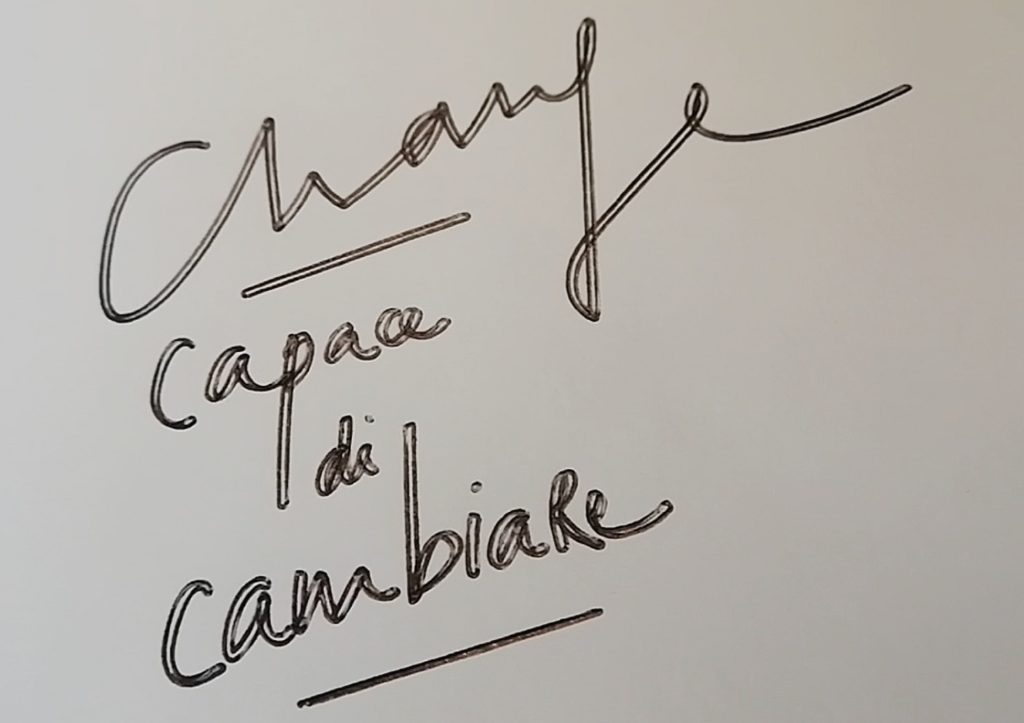 Change
capace
di
cambiare